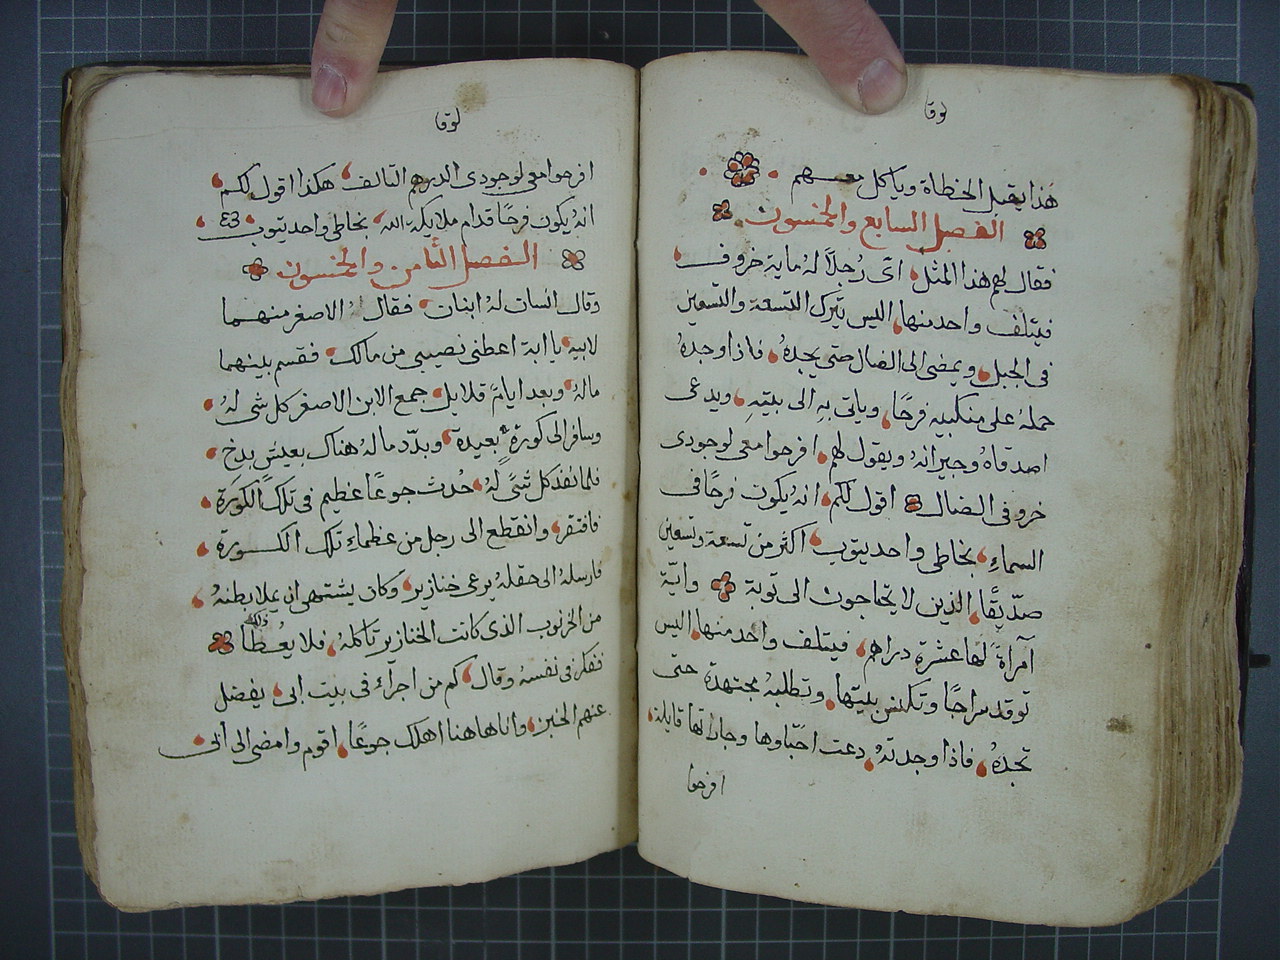 لوقا
هذا يقبل الخطاة وياكل معهم
الفصل السابع والخمسون
فقال لهم هذا المثل اى رُجلاً لهُ ماية خروف
فيتلف واحد منها اليس يترك التسعة والتسعين
فى الجبل ويمضى الى الضال حتى يجدهُ فاذا وجدهُ
حملهُ على منكبيه فرحًا وياتى بهِ الى بيتهِ ويدعى
اصدقاهُ وجيرانهُ ويقول لهم افرحوا معى لوجودى
خروفى الضال اقول لكم انهُ يكون فرحًا فى
السماءِ بخاطى واحد يتوب اكثر من تسعة وتسعين
صدّيقًا الذين لا يحتاجون الى توبة وايّة
آمراة لها عشرة دراهم فيتلف واحد منها اليس
توقد سراجًا وتكنس بيتها وتطلبهُ مجتهدة حتى
تجدهُ فاذا وجدتهُ دعت احبّاوها وجاراتها قايلة
افرحوا
لوقا
افرحوا معى لوجودى الدرهم التالف هكذا اقول لكم
انهُ يكون فرحًا قدام ملايكة الله بخاطى واحد يتوب
الفصل الثامن والخمسون
وقال انسان لهُ ابنان فقال الاصغر منهما
لابيه يا ابة اعطنى نصيبى من مالك فقسم بينهما
مالهُ وبعد ايامٌ قلايل جمع الابن الاصغر كل شى لهُ
وسافر الى كورة بعيدة وبدّد مالهُ هناك بعيش بدخ
فلما نفد كل شىً لهُ حُدث جوعًا عظيم فى تلك الكورة
فافتقر وانقطع الى رجل من عظماءِ تلك الكورة
فارسلهُ الى حقله يرعى خنازير وكان يشتهى ان يملا بطنهُ
من الخرنوب الذى كانت الخنازير تاكلهُ فلا يعُطا ذلك
ففكر فى نفسهُ وقال كم من اجراءِ فى بيت ابى يفضل
عنهم الخبز وانا هاهنا اهلك جوعًا اقوم وامضى الى ابى